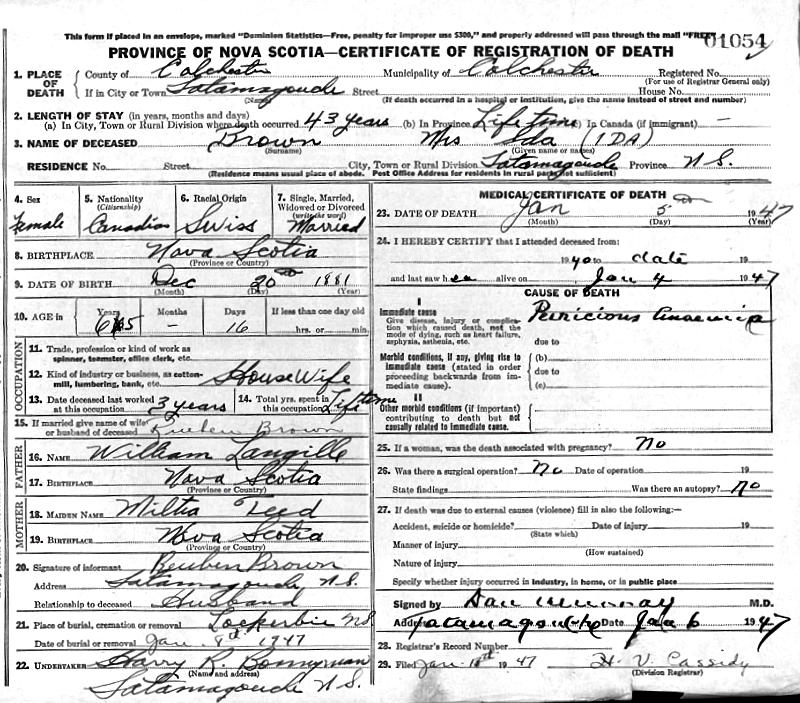 This form if placed in an envelope, marked "Dominion Statistics—Free, penalty for improper use $300," and properly addressed will pass through the mail "FREE"
01054
PROVINCE OF NOVA SCOTIA—CERTIFICATE OF REGISTRATION OF DEATH
1. PLACE OF DEATH
County of Colchester Municipality of Colchester Registered No.
(For use of Registrar General only)
If in City or Town Tatamagouche Street House No.
(Name) (If death occurred in a hospital or institution, give the name instead of street and number)
2. LENGTH OF STAY (in years, months and days)
(a) In City, Town or Rural Division where death occurred 43 years (b) In Province Life time (c) In Canada (if immigrant) —
3. NAME OF DECEASED Brown Mrs Ida (IDA)
(Surname) (Given name or names)
RESIDENCE No. Street City, Town or Rural Division Tatamagouche Province N.S.
(Residence means usual place of abode. Post Office Address for residents in rural parts not sufficient)
4. Sex
Female
5. Nationality
(Citizenship)
Canadian
6. Racial Origin
Swiss
7. Single, Married, Widowed or Divorced
(write the word)
Married
8. BIRTHPLACE Nova Scotia
(Province or Country)
9. DATE OF BIRTH Dec 20 1881
(Month) (Day) (Year)
10. AGE in
Years Months Days If less than one day old
65 — 16 hrs. or min.
OCCUPATION
11. Trade, profession or kind of work as spinner, teamster, office clerk, etc.
12. Kind of industry or business, as cotton-mill, lumbering, bank, etc. House Wife
13. Date deceased last worked at this occupation 3 years
14. Total yrs. spent in this occupation Life time
15. If married give name of wife or husband of deceased Reuben Brown
FATHER
16. NAME William Langille
17. BIRTHPLACE Nova Scotia
(Province or Country)
MOTHER
18. MAIDEN NAME Miltia Teed
19. BIRTHPLACE Nova Scotia
(Province or Country)
20. Signature of informant Reuben Brown
Address Tatamagouche N.S.
Relationship to deceased Husband
21. Place of burial, cremation or removal Lockerbie N.S.
Date of burial or removal Jan. 8th 1947
22. UNDERTAKER Harry R. Bonnyman
(Name and address)
Tatamagouche N.S.
MEDICAL CERTIFICATE OF DEATH
23. DATE OF DEATH Jan 5 1947
(Month) (Day) (Year)
24. I HEREBY CERTIFY that I attended deceased from:
1940 to date 19
and last saw her alive on Jan 4 1947
CAUSE OF DEATH
I
Immediate cause
Give disease, injury or complication which caused death, not the mode of dying, such as heart failure, asphyxia, asthenia, etc.
Pernicious Anaemia
due to
Morbid conditions, if any, giving rise to immediate cause (stated in order proceeding backwards from immediate cause).
(b)
due to
(c)
II
Other morbid conditions (if important) contributing to death but not causally related to immediate cause.
25. If a woman, was the death associated with pregnancy? No
26. Was there a surgical operation? No Date of operation 19
State findings Was there an autopsy? No
27. If death was due to external causes (violence) fill in also the following:—
Accident, suicide or homicide? Date of injury 19
(State which)
Manner of injury
(How sustained)
Nature of injury
Specify whether injury occurred in industry, in home, or in public place
Signed by Dan Murray M.D.
Address Tatamagouche Jan 6 1947
28. Registrar's Record Number
29. Filed Jan. 10th 1947 H. V. Cassidy
(Division Registrar)